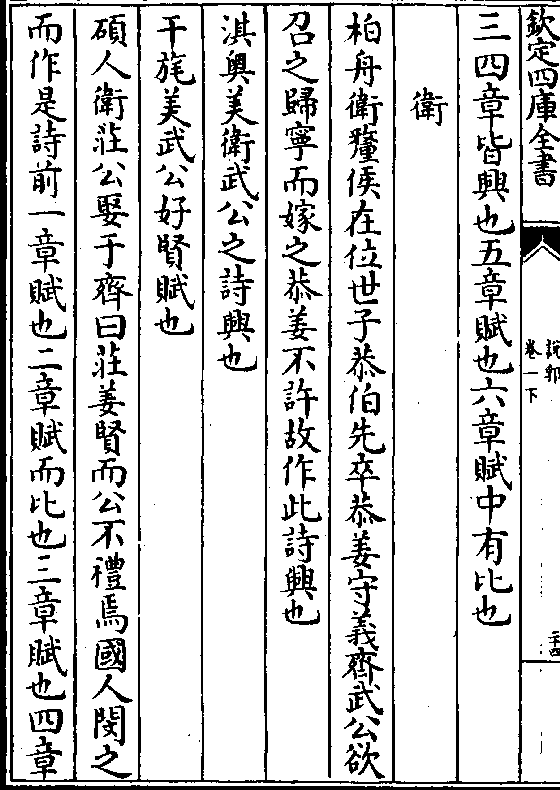 欽定四庫全書
說郛
卷一下
二十四
三四章皆興也五章賦也六章賦中有比也
衛
柏舟衛釐侯在位世子恭伯先卒恭姜守義齊武公欲
召之歸寧而嫁之恭姜不許故作此詩興也
淇奧美衛武公之詩興也
干旄美武公好賢賦也
碩人衛莊公娶于齊曰莊姜賢而公不禮焉國人閔之
而作是詩前一章賦也二章賦而比也三章賦也四章